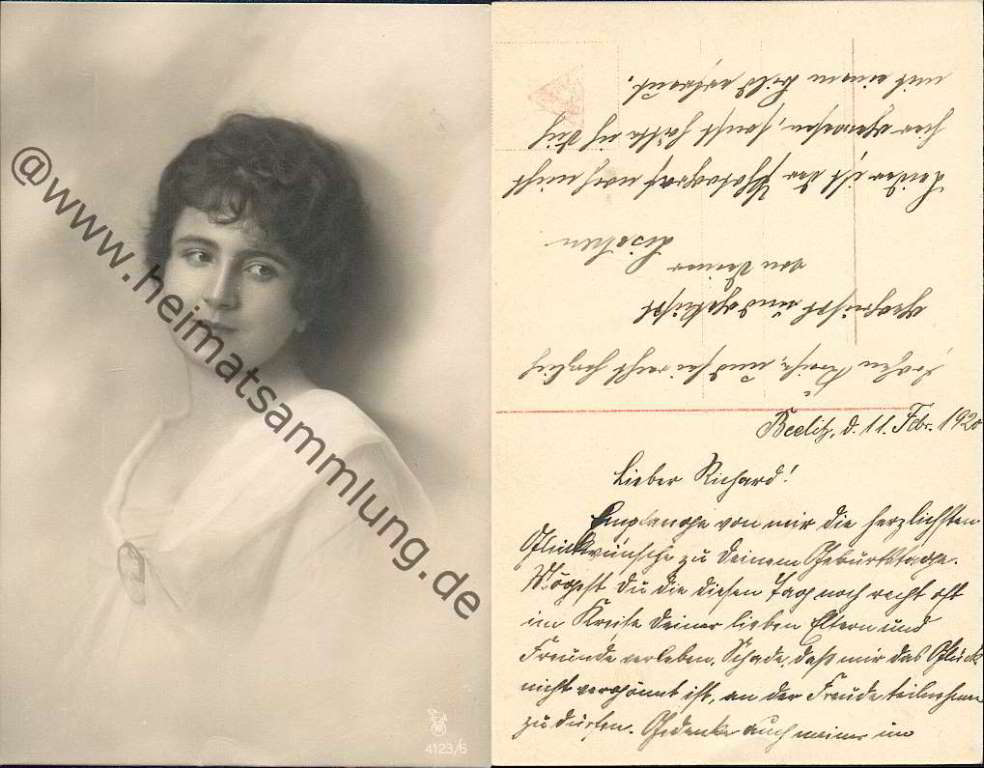 @www.heimatsammlung.de
4123/6
Beelitz, d. 11. Febr. 1920
Lieber Richard!
Empfange von mir die herzlichsten
Glückwünsche zu deinem Geburtstage.
Mögest du die diesen Tag noch recht oft
im Kreise deiner lieben Eltern und
Freunde verleben. Schade, daß mir das Glück
nicht vergönnt ist, an der Freude teilnehmen
zu dürfen. Gedenke auch meiner im
frohen Kreise, und sei recht herzlich
gegrüßt und geküßt
von Deiner
Lieschen
Leider ist der Photograph noch nicht
hier gewesen, sonst hätte ich Dich
mit einem Bild erfreut.